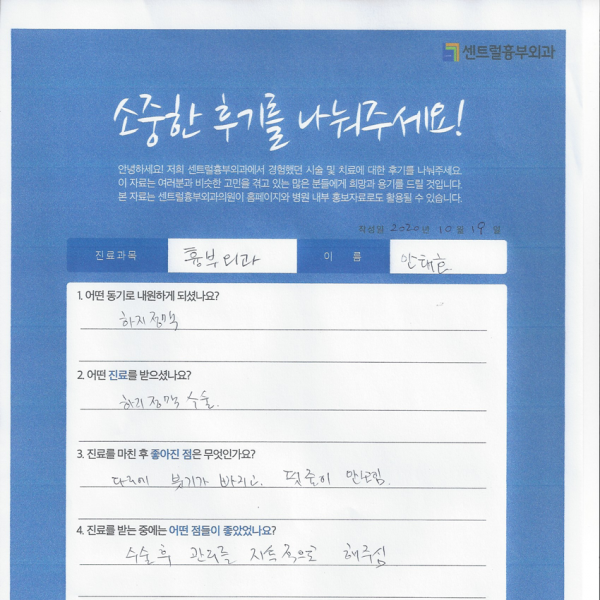 센트럴흉부외과
소중한 후기를 나눠주세요!
안녕하세요! 저희 센트럴흉부외과에서 경험했던 시술 및 치료에 대한 후기를 나눠주세요.
이 자료는 여러분과 비슷한 고민을 겪고 있는 많은 분들에게 희망과 용기를 드릴 것입니다.
본 자료는 센트럴흉부외과의원이 홈페이지와 병원 내부 홍보자료로도 활용될 수 있습니다.
작성일 2020년 10월 19일
진료과목 흉부외과 이 름 안태효
1. 어떤 동기로 내원하게 되셨나요?
하지정맥
2. 어떤 진료를 받으셨나요?
하지정맥 수술.
3. 진료를 마친 후 좋아진 점은 무엇인가요?
다리에 붓기가 빠지고. 핏줄이 안보임.
4. 진료를 받는 중에는 어떤 점들이 좋았었나요?
수술후 관리를 지속적으로 해주심